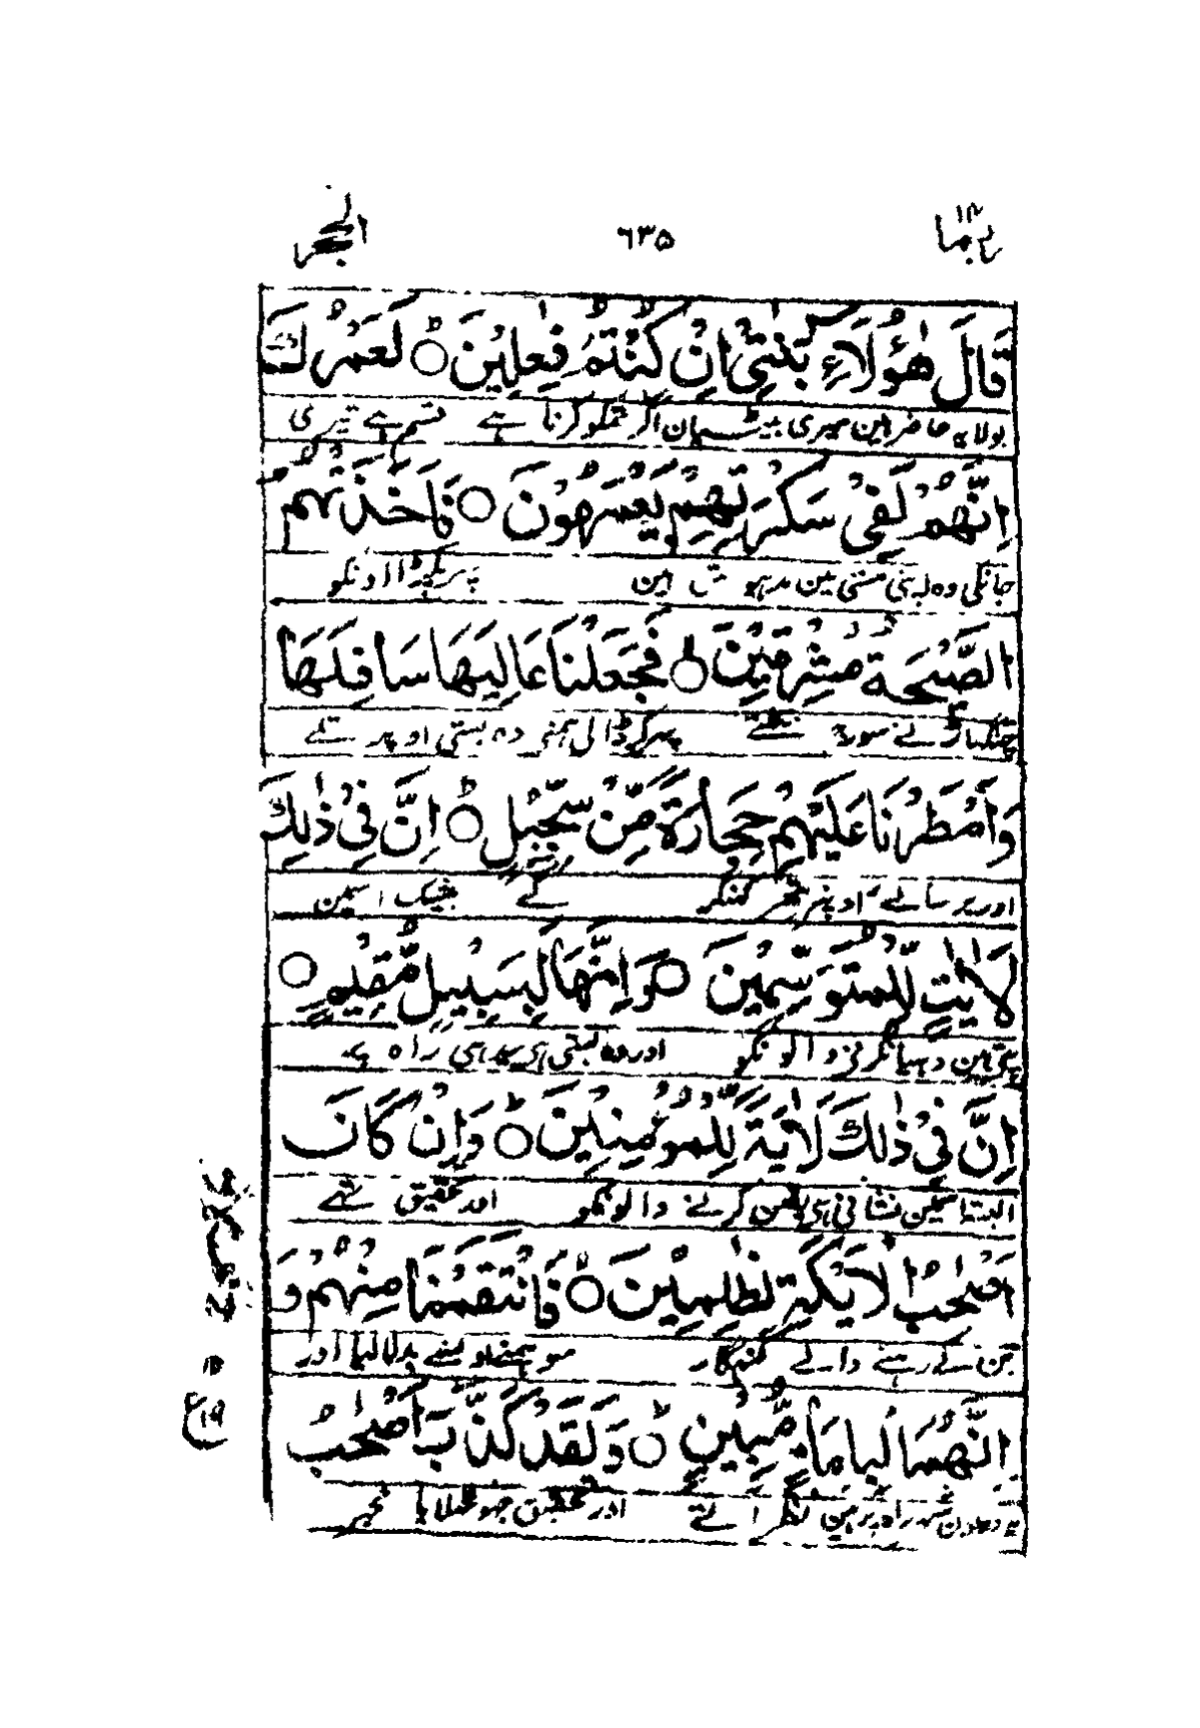 ربما ١٤
٦٣٥
الحجر
قَالَ هٰٓؤُلَآءِ بَنٰتِیْۤ اِنْ كُنْتُمْ فٰعِلِیْنَ ○ لَعَمْرُكَ
بولا یہ حاضر ہین میری بیٹیان اگر تمکو کرنا ہے قسم ہے تیری
اِنَّهُمْ لَفِیْ سَكْرَتِهِمْ یَعْمَهُوْنَ ○ فَاَخَذَتْهُمُ
جانکی وہ اپنی مستی مین مدہوش ہین پہر پکڑا اونکو
الصَّیْحَةُ مُشْرِقِیْنَ ○ فَجَعَلْنَا عَالِیَهَا سَافِلَهَا
چنگہاڑ نے سورج نکلتے پہر کر ڈالی ہمنے وہ بستی اوپر تلے
وَاَمْطَرْنَا عَلَیْهِمْ حِجَارَةً مِّنْ سِجِّیْلٍ ○ اِنَّ فِیْ ذٰلِكَ
اور برسائے اونپر پتھر کنکر کے بیشک اسمین
لَاٰیٰتٍ لِّلْمُتَوَسِّمِیْنَ ○ وَاِنَّهَا لَبِسَبِیْلٍ مُّقِیْمٍ ○
پتی ہین دہیان کرنے والونکو اور وہ بستی ہی سیدہی راہ پر
اِنَّ فِیْ ذٰلِكَ لَاٰیَةً لِّلْمُؤْمِنِیْنَ ○ وَاِنْ كَانَ
البتہ اسمین نشانی ہی یقین کرنے والونکو اور تحقیق تھے
اَصْحٰبُ الْاَیْكَةِ لَظٰلِمِیْنَ ○ فَانْتَقَمْنَا مِنْهُمْ وَ
بن کے رہنے والے گنہگار سو ہمنے اونسے بدلا لیا اور
اِنَّهُمَا لَبِاِمَامٍ مُّبِیْنٍ ○ وَلَقَدْ كَذَّبَ اَصْحٰبُ
یہ دونون شہر راہ پر ہین نظر آتے اور تحقیق جھوٹھلایا